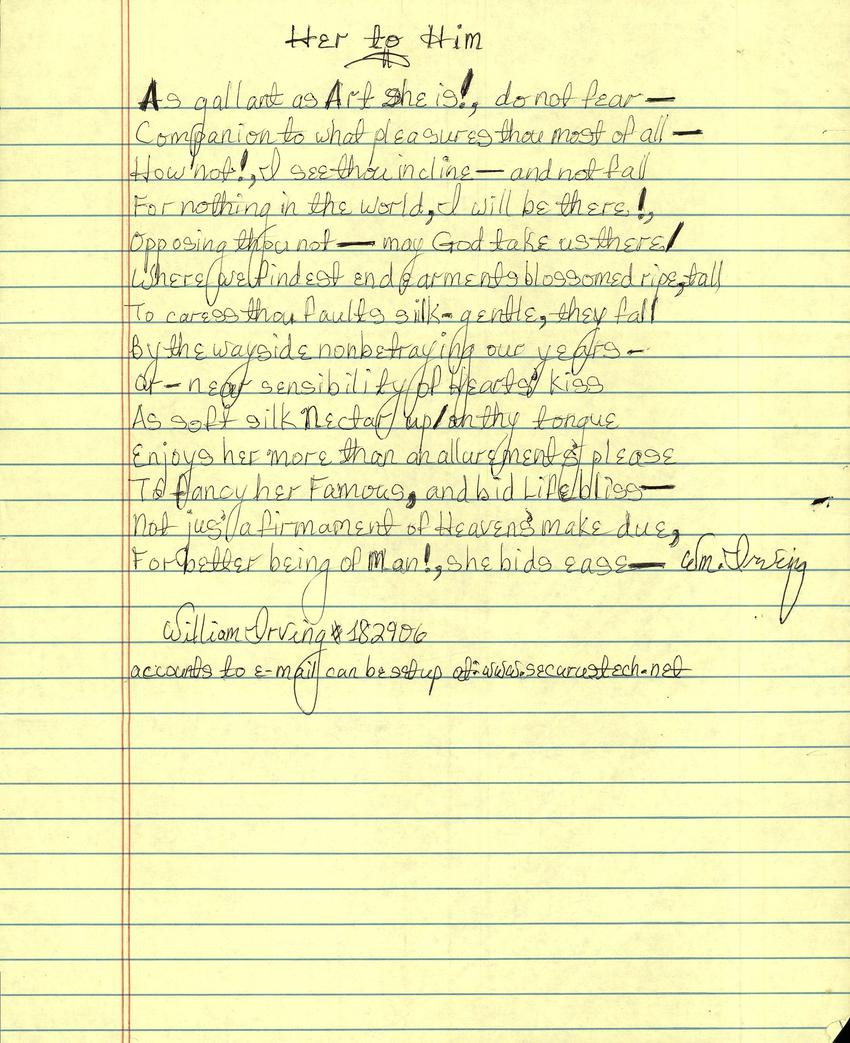 Her to Him
As gallant as Art she is!, do not fear —
Companion to what pleasures thou most of all —
How not!, I see thou incline — and not fall
For nothing in the world, I will be there!,
Opposing thou not — may God take us there/
Where we findest endearments blossomed ripe, tall
To caress thou faults silk-gentle, they fall
By the wayside nonbetraying our years —
Or — near sensibility of Hearts' kiss
As soft silk Nectar up/on thy tongue
Enjoys her more than an allurements' please
To fancy her Famous, and bid Life bliss —
Not jus' a firmament of Heavens make due,
For better being of Man!, she bids ease — Wm. Irving
William Irving #182906
accounts to e-mail can be set up at: www.securustech.net